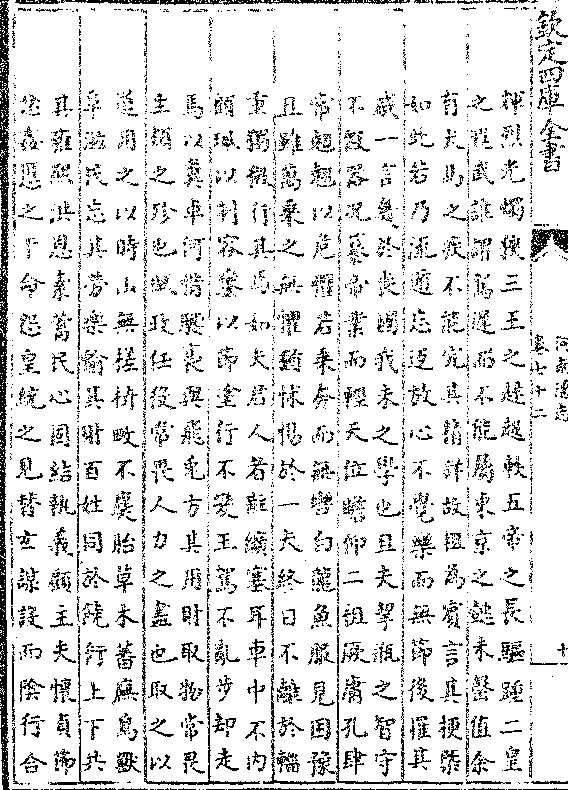 欽定四庫全書
河南通志
卷七十二
輝烈光燭狹三王之趢趗軼五帝之長驅踵二皇
之遐武誰謂駕遲而不能屬東京之懿未罄值余
有犬馬之疾不能究其精詳故粗為賓言其梗槩
如此若乃流遁忘返放心不覺樂而無節後罹其
戚一言幾於喪國我未之學也且夫挈瓶之智守
不假器况纂帝業而輕天位瞻仰二祖厥庸孔肆
常翹翹以危懼若乗奔而無轡白龍魚服見困豫
且雖萬乗之無懼猶怵惕於一夫終日不離於輜
重獨微行其焉如夫君人者黈纊塞耳車中不内
顧珮以制容鑾以節塗行不變玉駕不亂步却走
馬以糞車何惜騕褭與飛兎方其用財取物常畏
生類之殄也賦政任役常畏人力之盡也取之以
道用之以時山無槎枿畋不麛胎草木蕃廡鳥獸
阜滋民忘其勞樂輸其財百姓同於饒衍上下共
其雍熙洪恩素蓄民心固結執義顧主夫懷貞節
忿姦慝之干命怨皇統之見替玄謀設而陰行合